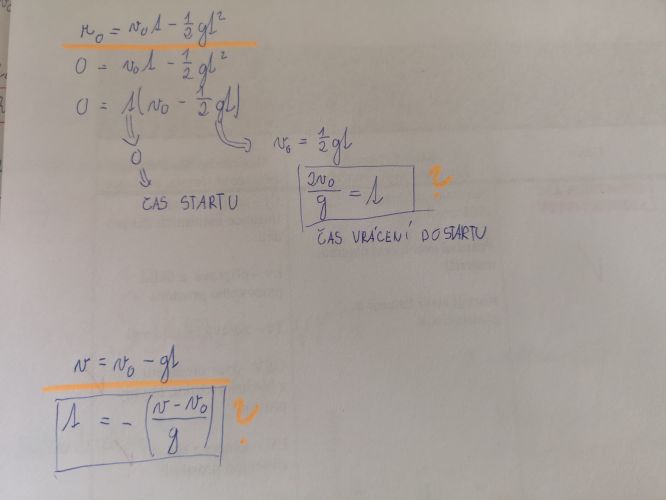 r₀ = v₀t - 1/2 gt²
0 = v₀t - 1/2 gt²
0 = t(v₀ - 1/2 gt)
0
v₀ = 1/2 gt
ČAS STARTU
2v₀/g = t ?
ČAS VRÁCENÍ DO STARTU
v = v₀ - gt
t = -((v - v₀)/g) ?